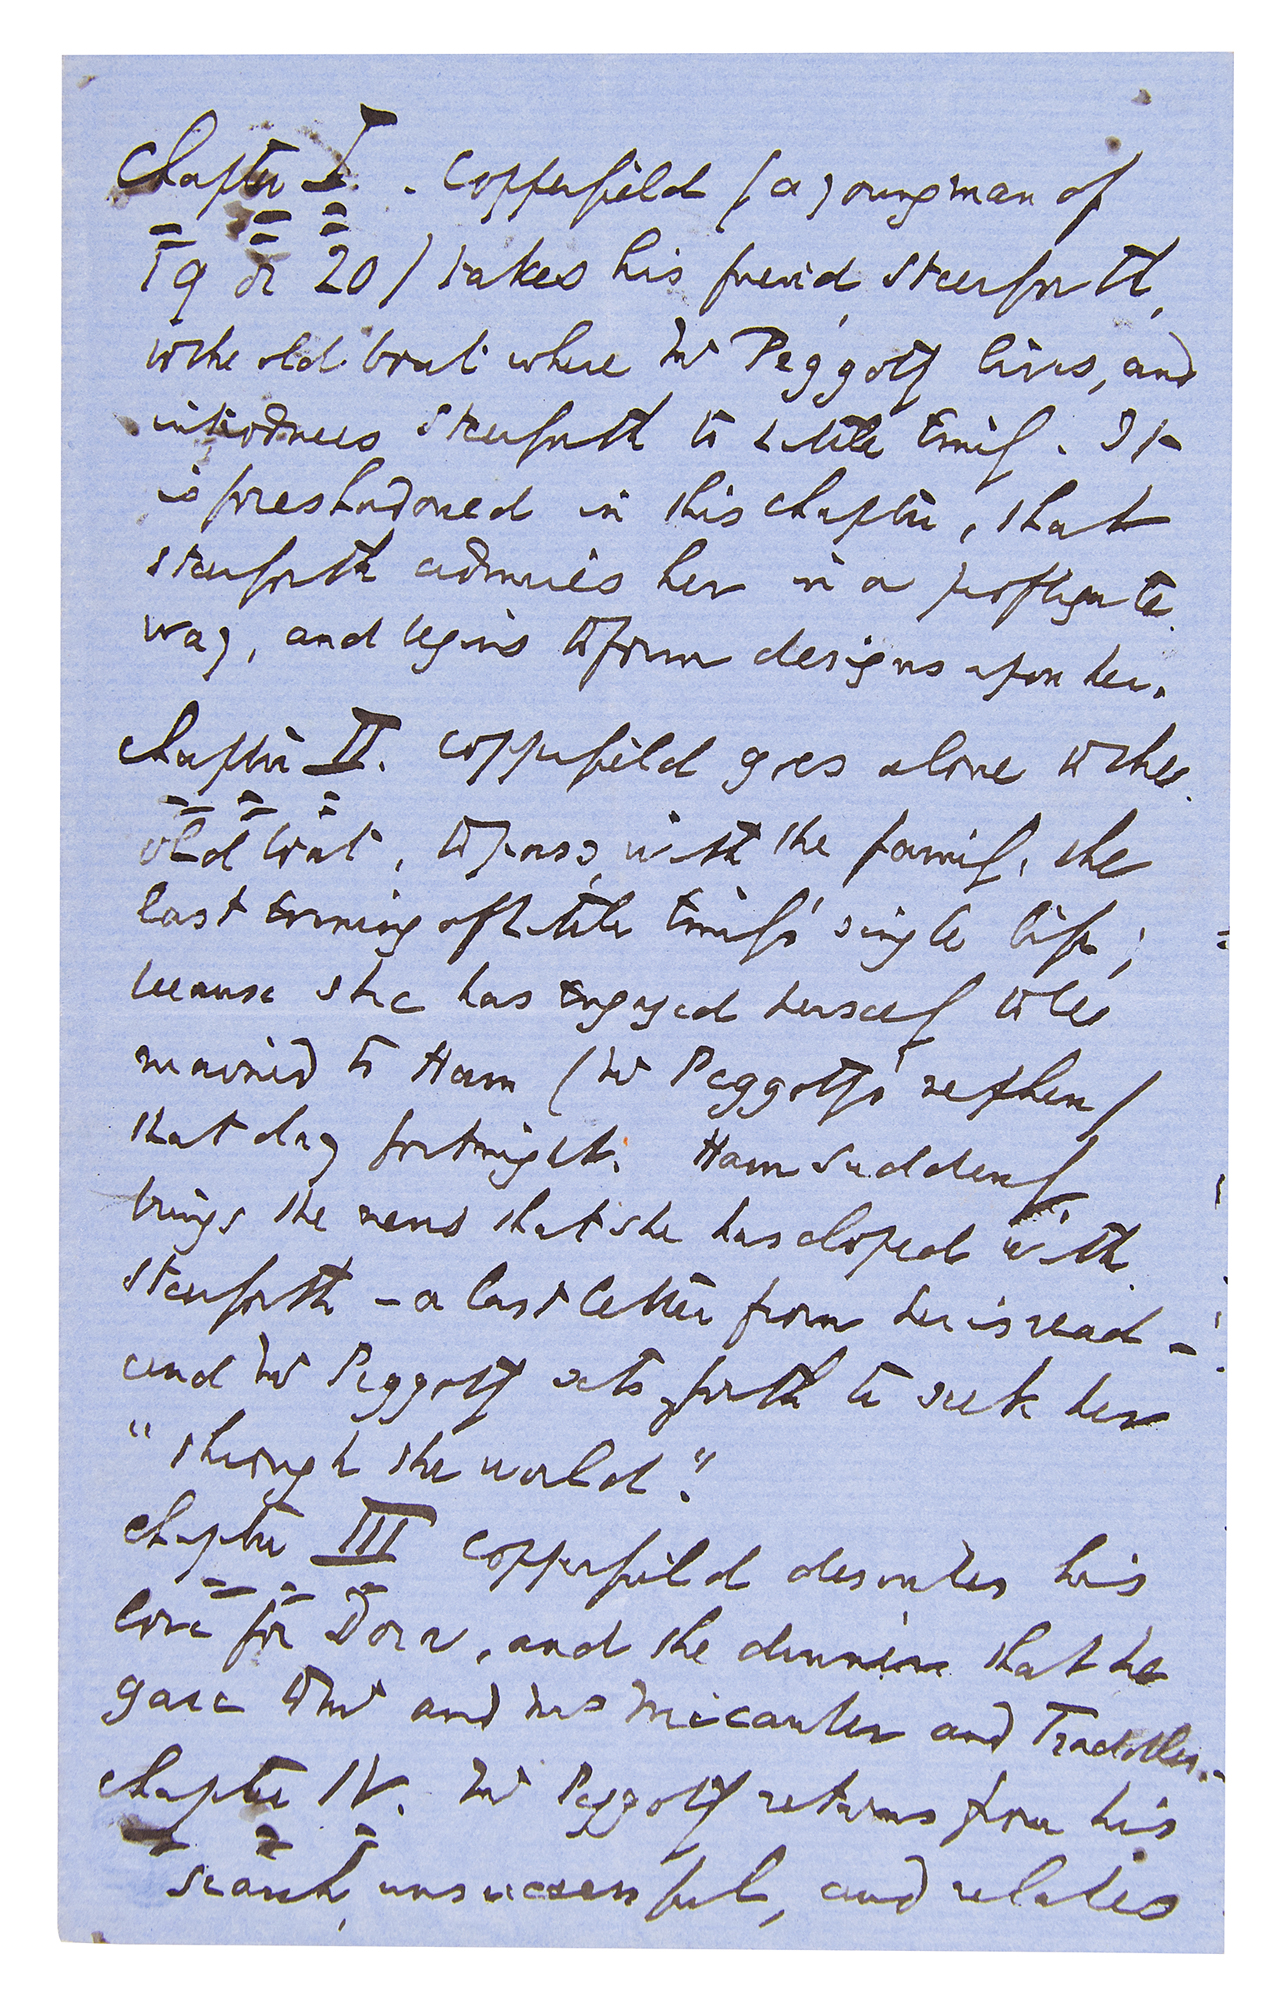 Chapter I. - Copperfield (a young man of
19 or 20) takes his friend Steerforth,
to the old boat where Mr Peggotty lives, and
introduces Steerforth to Little Emily. It
is foreshadowed in this chapter, that
Steerforth admires her in a profligate
way, and begins to form designs upon her.
Chapter II. Copperfield goes alone to the
old boat, to pass, with the family, the
last Evening of Little Emily's single life;
because she has Engaged herself to be
married to Ham (Mr Peggotty's nephew)
that day fortnight. Ham suddenly
brings the news that she has eloped with
Steerforth - a last letter from her is read -
and Mr Peggotty sets forth to seek her
"through the world."
Chapter III Copperfield describes his
love for Dora, and the dinner that he
gave to Mr and Mrs Micawber and Traddles. -
Chapter IV. Mr Peggotty returns from his
search, unsuccessful, and relates